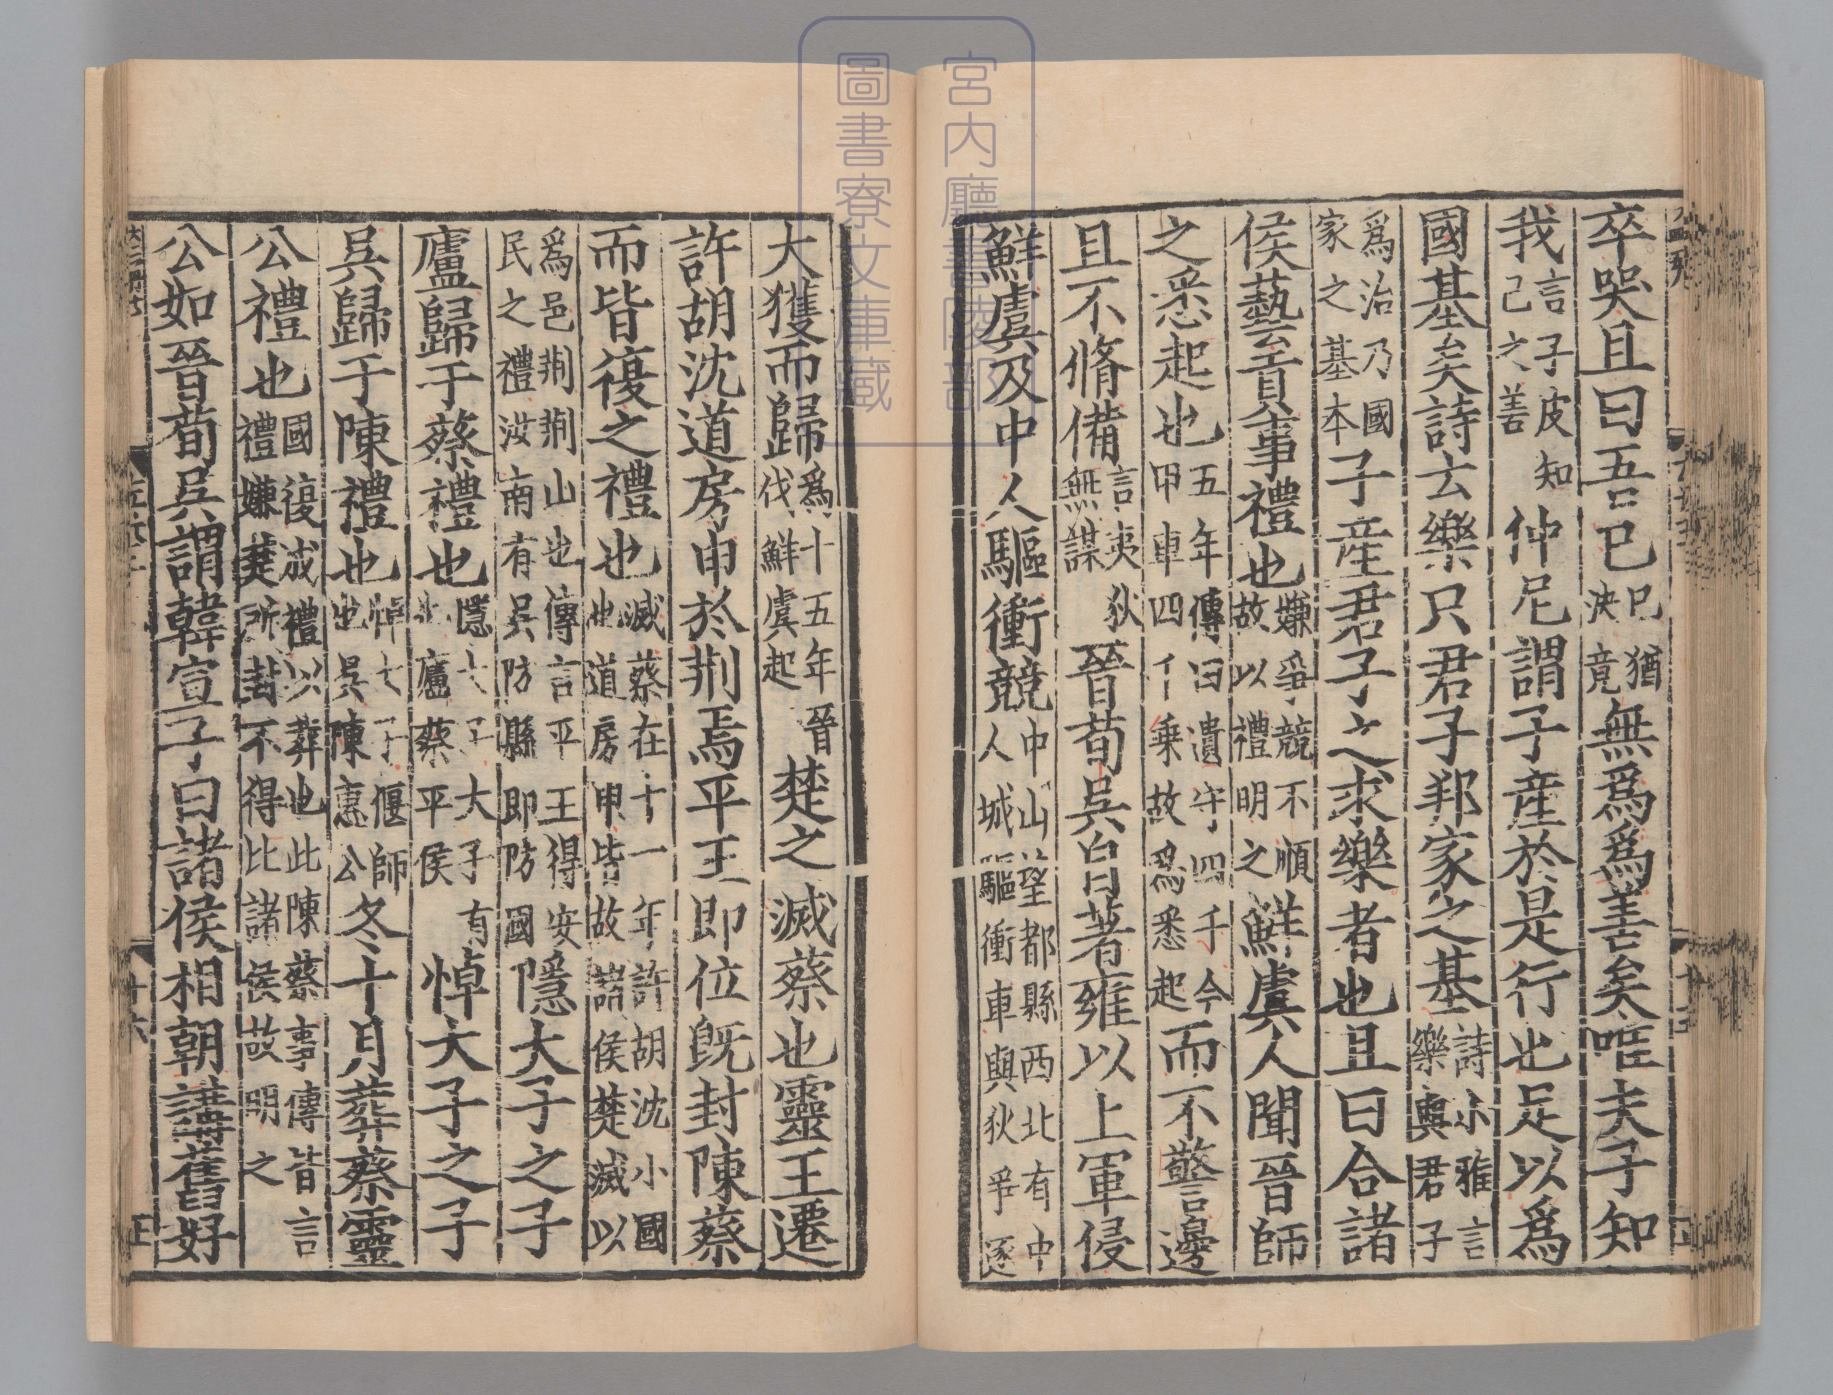 卒哭且曰吾已已猶決竟無爲爲善矣唯夫子知
我言子皮知己之善仲尼謂子產於是行也足以爲
國基矣詩云樂只君子邦家之基詩小雅言樂與君子
爲治乃國家之基本子產君子之求樂者也且曰合諸
侯藝貢事禮也嫌爭競不順故以禮明之鮮虞人聞晉師
之悉起也五年傳曰遺守四千今甲車四千乘故爲悉起而不警邊
且不脩備言夷狄無謀晉荀吳自著雍以上軍侵
鮮虞及中人驅衝競中山望都縣西北有中人城驅衝車與狄爭逐
大獲而歸爲十五年晉伐鮮虞起楚之滅蔡也靈王遷
許胡沈道房申於荆焉平王即位既封陳蔡
而皆復之禮也滅蔡在十一年許胡沈小國也道房申皆故諸侯楚滅以
爲邑荆荆山也傳言平王得安民之禮汝南有吳防縣即防國隱大子之子
廬歸于蔡禮也隱大子大子有也廬蔡平侯悼大子之子
吳歸于陳禮也悼大子偃師也吳陳惠公冬十月葬蔡靈
公禮也國復成禮以葬也此陳蔡事傳皆言禮嫌楚所封不得比諸侯故明之
公如晉荀吳謂韓宣子曰諸侯相朝講舊好
十六
宮内廳書陵部
圖書寮文庫藏